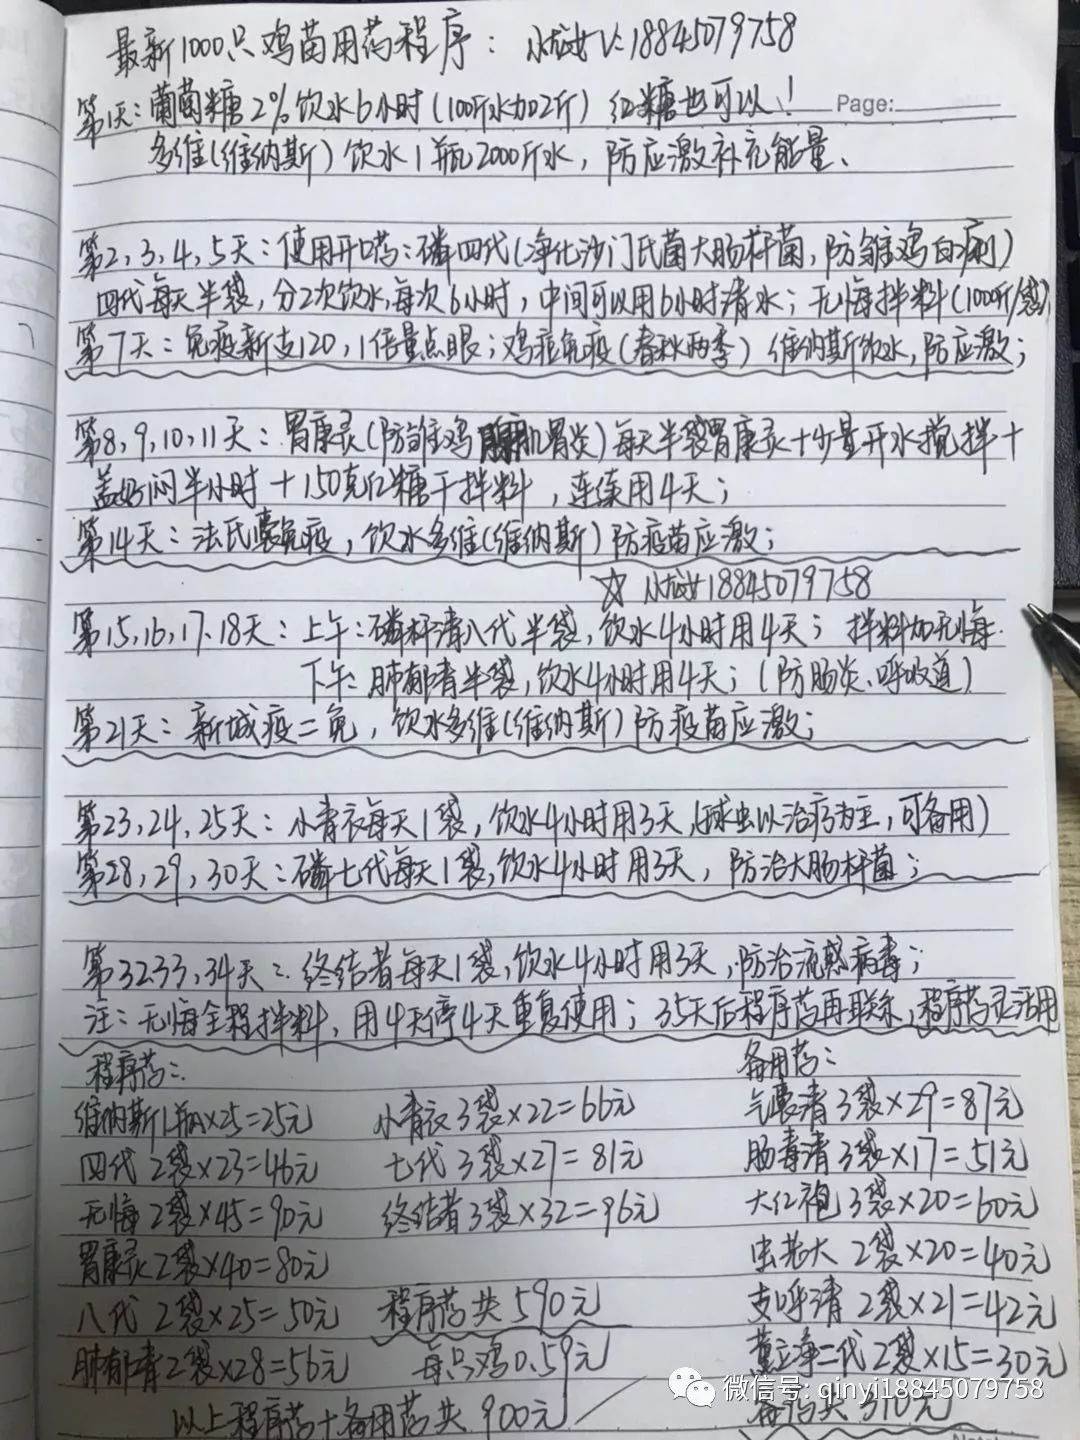 最新1000只鸡苗用药程序: 小龙女V:18845079758
第1天:葡萄糖2%饮水6小时(100斤水加2斤) 红糖也可以! Page:
多维(维纳斯)饮水1瓶2000斤水,防应激补充能量、
第2,3,4,5天:使用开口药:磷四代(净化沙门氏菌大肠杆菌,防雏鸡白痢)
四代每天半袋,分2次饮水,每次6小时,中间可以用6小时清水;无悔拌料(1000斤/袋)
第7天:免疫新支120,1倍量点眼;鸡痘免疫(春秋两季) 维纳斯饮水,防应激;
第8,9,10,11天:胃康灵(防雏鸡腺肌胃炎)每天半袋胃康灵+少量开水搅拌+
盖好闷半小时+150克红糖干拌料,连续用4天;
第14天:法氏囊免疫,饮水多维(维纳斯)防疫苗应激;
☆ 小龙女18845079758
第15,16,17、18天:上午:磷杆清八代半袋,饮水4小时用4天;拌料加无悔.
下午:肺郁清半袋,饮水4小时用4天;(防肠炎、呼吸道)
第21天:新城疫二免,饮水多维(维纳斯)防疫苗应激;
第23,24,25天:小青衣每天1袋,饮水4小时用3天(球虫以治疗为主,可备用)
第28,29,30天:磷七代每天1袋,饮水4小时用3天,防治大肠杆菌;
第32,33,34天:终结者每天1袋,饮水4小时用3天,防治流感病毒;
注:无悔全程拌料,用4天停4天重复使用;35天后程序药再联系,程序药灵活用
程序药: 备用药:
维纳斯1瓶×25=25元 小青衣3袋×22=66元 气囊清3袋×29=87元
四代2袋×23=46元 七代3袋×27=81元 肠毒清3袋×17=51元
无悔2袋×45=90元 终结者3袋×32=96元 大红袍3袋×20=60元
胃康灵2袋×40=80元 虫老大2袋×20=40元
八代2袋×25=50元 程序药共590元 支呼清2袋×21=42元
肺郁清2袋×28=56元 每只鸡0.59元 二代2袋×15=30元
微信号: qinyi18845079758
以上程序药+备用药共900元 备药共310元